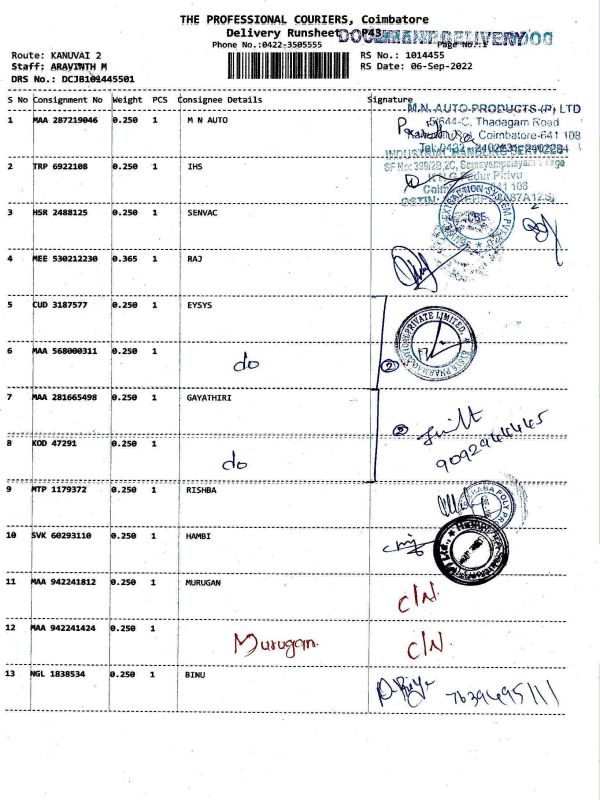 THE PROFESSIONAL COURIERS, Coimbatore
Delivery Runsheet P43
Phone No.:0422-3505555 Page No.:1
Route: KANUVAI 2 RS No.: 1014455
Staff: ARAVINTH M RS Date: 06-Sep-2022
DRS No.: DCJB101445501
S No Consignment No Weight PCS Consignee Details Signature
M.N. AUTO PRODUCTS (P) LTD
1 MAA 287219046 0.250 1 M N AUTO
5/644-C, Thadagam Road
Coimbatore-641 108
2 TRP 6922108 0.250 1 IHS
3 HSR 2488125 0.250 1 SENVAC
4 MEE 530212230 0.365 1 RAJ
5 CUD 3187577 0.250 1 EYSYS
6 MAA 568000311 0.250 1 do 2
7 MAA 281665498 0.250 1 GAYATHIRI
2
8 KOD 47291 0.250 1 do
9 MTP 1179372 0.250 1 RISHBA
10 SVK 60293110 0.250 1 HAMBI
11 MAA 942241812 0.250 1 MURUGAN C/N.
12 MAA 942241424 0.250 1 Murugan. C/N.
13 NGL 1838534 0.250 1 BINU